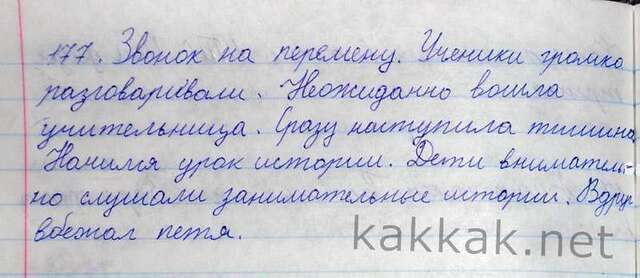 177. Звонок на перемену. Ученики громко
разговаривали. Неожиданно вошла
учительница. Сразу наступила тишина.
Начился урок истории. Дети вниматель-
но слушали занимательные истории. Вдруг
вбежал петя.
kakkak.net